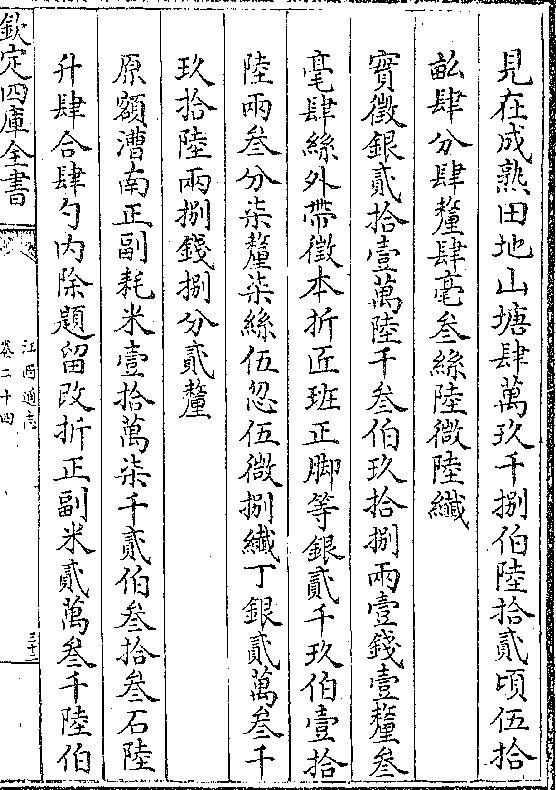 見在成熟田地山塘肆萬玖千捌伯陸拾貳頃伍拾
畝肆分肆釐肆毫叁絲陸微陸纖
實徵銀貳拾壹萬陸千叁伯玖拾捌兩壹錢壹釐叁
毫肆絲外帶徵本折匠班正脚等銀貳千玖伯壹拾
陸兩叁分柒釐柒絲伍忽伍微捌纖丁銀貳萬叁千
玖拾陸兩捌錢捌分貳釐
原額漕南正副耗米壹拾萬柒千貳伯叁拾叁石陸
升肆合肆勺内除題留改折正副米貳萬叁千陸伯
欽定四庫全書
江西通志
卷二十四
三十三